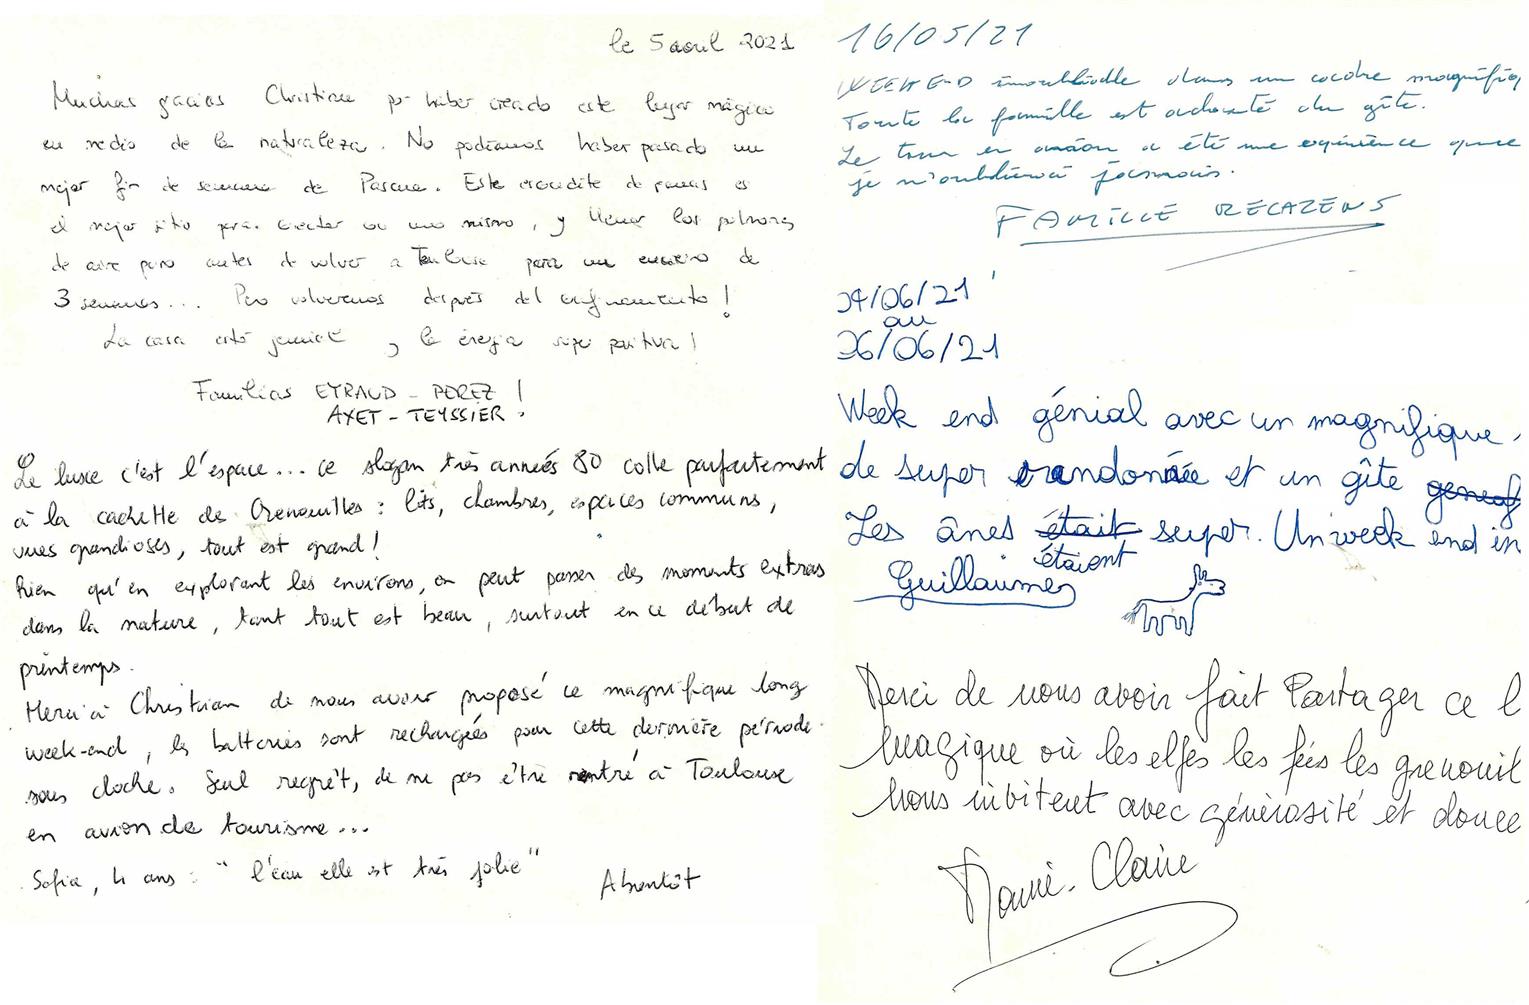 le 5 avril 2021
Muchas gracias Christine por haber creado este lugar mágico
en medio de la naturaleza. No podíamos haber pasado un
mejor fin de semana de Pascua. Este de ranas es
el mejor sitio para conectar con uno mismo, y llenar los pulmones
de aire puro antes de volver a Toulouse para un encierro de
3 semanas... Pero volveremos después del confinamiento!
La casa está , la énergia super positiva!
Familias EYRAUD - PEREZ !
AXET - TEYSSIER !
Le luxe c'est l'espace... ce slogan très années 80 colle parfaitement
à la cachette des Grenouilles : lits, chambres, espaces communs,
vues grandioses, tout est grand!
Rien qu'en explorant les environs, on peut passer des moments extras
dans la nature, tant tout est beau, surtout en ce début de
printemps.
Merci à Christian de nous avoir proposé ce magnifique long
week-end, les batteries sont rechargées pour cette dernière période
sous cloche. Seul regrêt, de ne pas être rentré à Toulouse
en avion de tourisme...
Sofia, 4 ans : "l'eau elle est très jolie"
A bientôt
16/05/21
WEEK END inoubliable dans un cadre magnifiq
Toute la famille est enchanté du gîte.
Le tour en avion a été une expérience que
je n'oublierai jamais.
FAMILLE RECAZENS
04/06/21
au
06/06/21
Week end génial avec un magnifique
de super randonnée et un gîte
Les ânes était super. Un week end in
étaient
Guillaume
Merci de nous avoir fait Partager ce l
magique où les elfes les fées les grenouil
nous invitent avec générosité et douce
Marie-Claire